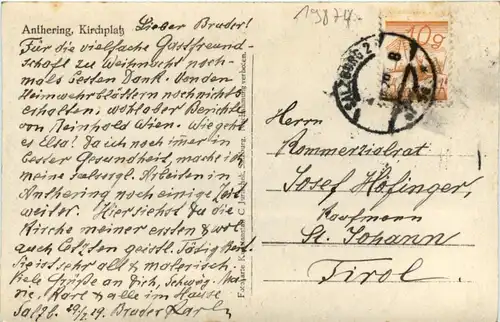 19874
Anthering, Kirchplatz
Lieber Bruder!
Für die vielfache Gastfreund-
schaft zu Weihnacht noch-
mals besten Dank. Von den
Heimwehrblättern noch nichts
erhalten; wohl aber Berichte
von Reinhold Wien. Wie geht
es Elsa? Da ich noch immer in
bester Gesundheit, mache ich
meine Arbeiten in
Anthering noch einige Zeit
weiter. Hier siehst du die
Kirche meiner ersten & wohl
auch letzten geistl. Tätigkeit.
Sie ist sehr alt & malerisch.
Viele Grüße an dich, Schwäg. Ma-
rie, Karl & alle im Hause
Salzb. 29/1 29. Bruder Karl
Jurischek, Salzburg
verboten.
SALZBURG 2
10g
Herrn
Kommerzialrat
Josef Höfinger,
Kaufmann
St. Johann
Tirol.